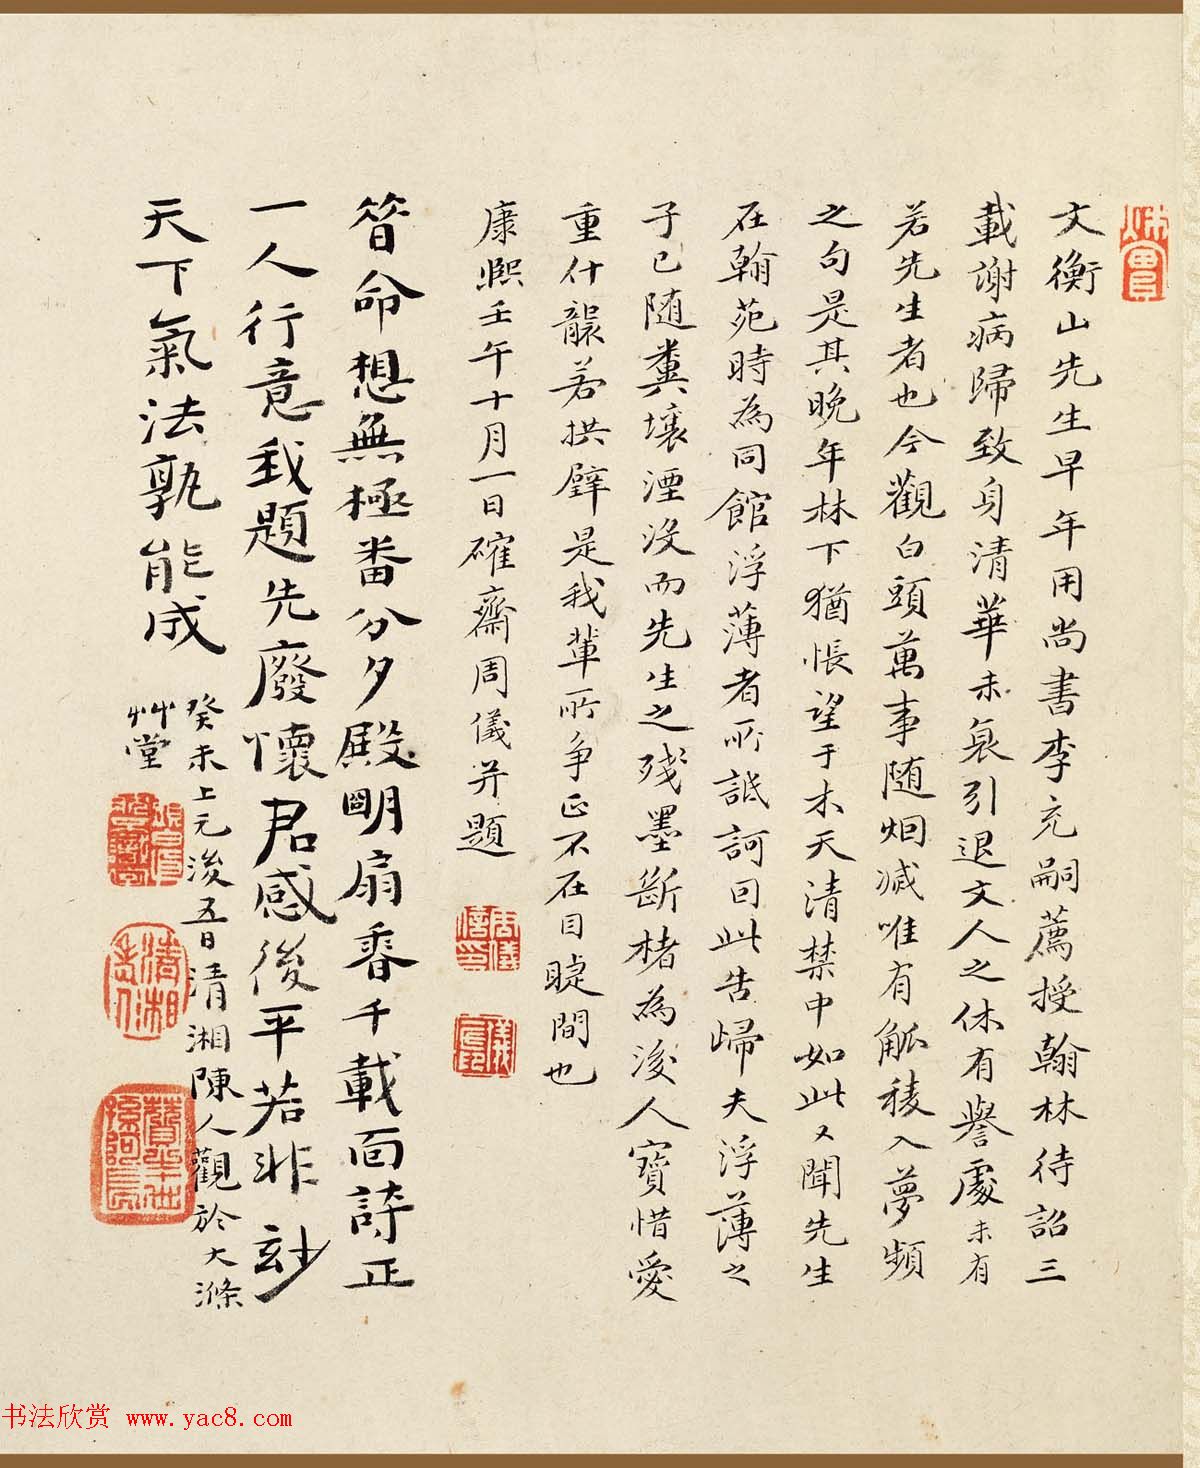 文衡山先生早年用尚書李充嗣薦授翰林待詔三
載謝病歸致身清華未衰引退文人之休有譽處未有
若先生者也今觀白頭萬事随烟减唯有觚稜入夢頻
之句是其晚年林下猶悵望于木天清禁中如此又聞先生
在翰苑時為同館浮薄者所詆訶回此告歸夫浮薄之
子已随糞壤湮没而先生之残墨斷楮為後人寶惜愛
重什襲若拱璧是我輩所争正不在目睫間也
康熙壬午十月一日確齋周儀并題
命想無極番分夕殿明扇香千載面詩正
一人行意我題先廢懷君感後平若非玅
天下氣法孰能成
癸未上元後五日清湘陳人觀於大滌
艸堂
周儀
清湘老人
贊之十世孫阿長
书法欣赏 www.yac8.com